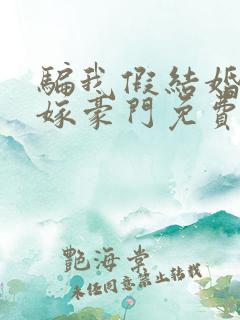 騙我假結婚
嫁豪門免費
艷海棠
未經同意禁止轉載